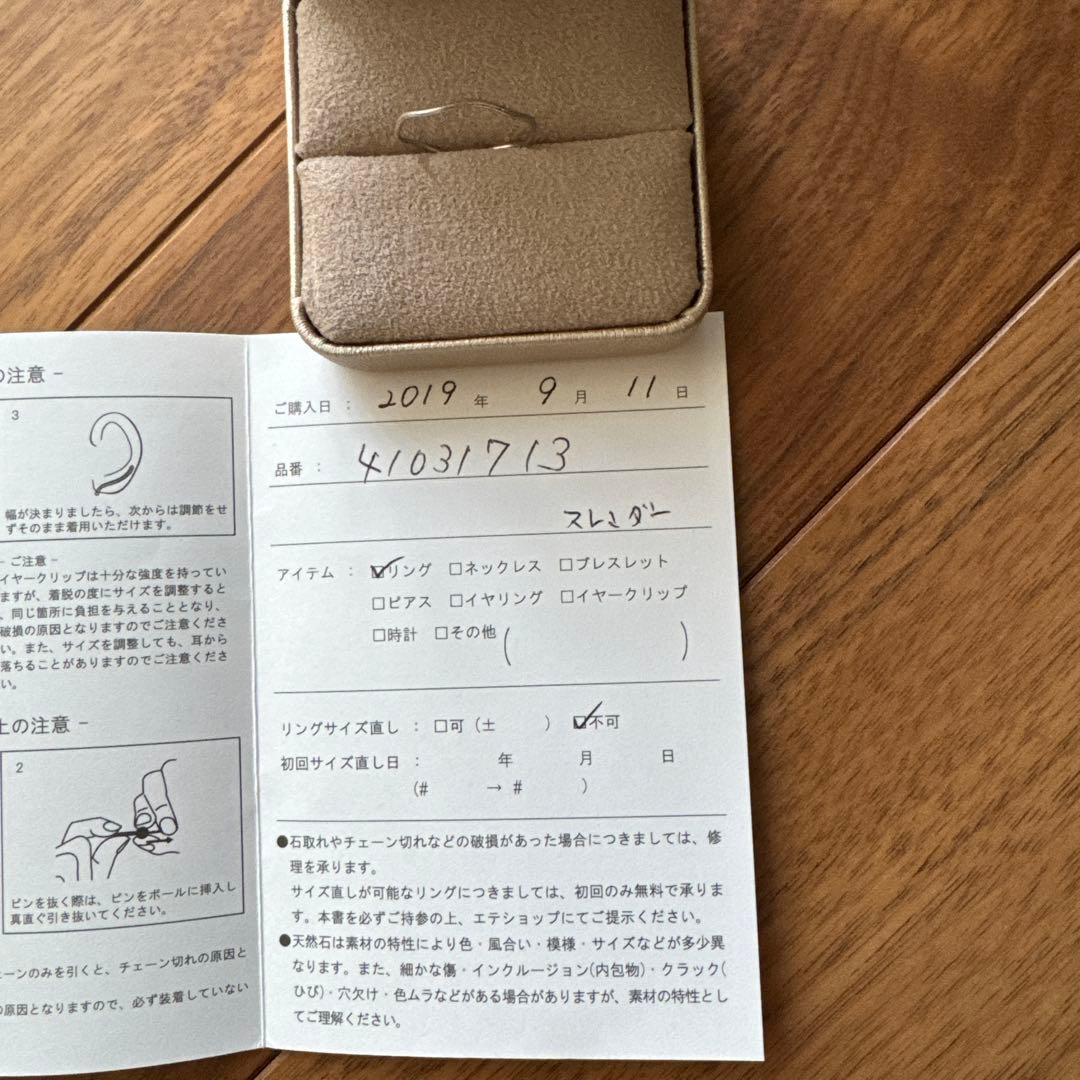 の注意 -
3
幅が決まりましたら、次からは調節をせ
ずそのまま着用いただけます。
- ご注意 -
イヤークリップは十分な強度を持ってい
ますが、着脱の度にサイズを調整すると
、同じ箇所に負担を与えることとなり、
破損の原因となりますのでご注意くださ
い。また、サイズを調整しても、耳から
落ちることがありますのでご注意くださ
い。
上の注意 -
2
ピンを抜く際は、ピンをボールに挿入し
真直ぐ引き抜いてください。
ェーンのみを引くと、チェーン切れの原因と
の原因となりますので、必ず装着していない
ご購入日 : 2019 年 9 月 11 日
品番 : 41031713
アイテム : ☑リング □ネックレス □ブレスレット
□ピアス □イヤリング □イヤークリップ
□時計 □その他 ( )
リングサイズ直し : □可 (± ) ☑不可
初回サイズ直し日 : 年 月 日
(# → # )
●石取れやチェーン切れなどの破損があった場合につきましては、修
理を承ります。
サイズ直しが可能なリングにつきましては、初回のみ無料で承りま
す。本書を必ずご持参の上、エテショップにてご提示ください。
●天然石は素材の特性により色・風合い・模様・サイズなどが多少異
なります。また、細かな傷・インクルージョン(内包物)・クラック(
ひび)・穴欠け・色ムラなどがある場合がありますが、素材の特性とし
てご理解ください。